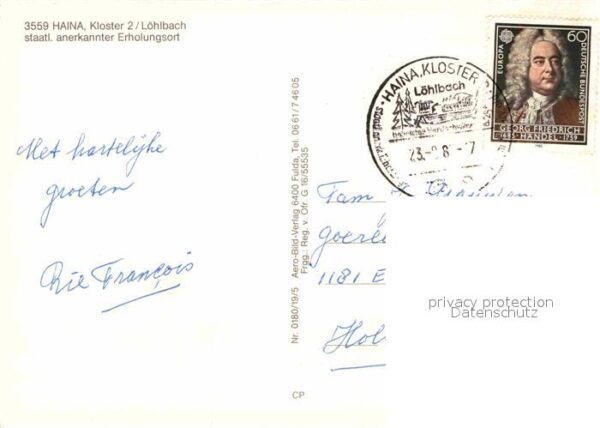 3559 HAINA, Kloster 2 / Löhlbach
staatl. anerkannter Erholungsort
Met hartelijke
groeten
Rie François
Nr. 0180/19/5 Aero-Bild-Verlag 6400 Fulda, Tel. 0661/74605
Frgg.: Reg. v. Ofr. G 16/55535
CP
HAINA, KLOSTER
Löhlbach
23.-8.8
EUROPA
60
DEUTSCHE BUNDESPOST
GEORG FRIEDRICH
1685 HÄNDEL 1759
Fam
Goer
1181 E
Hol
privacy protection
Datenschutz